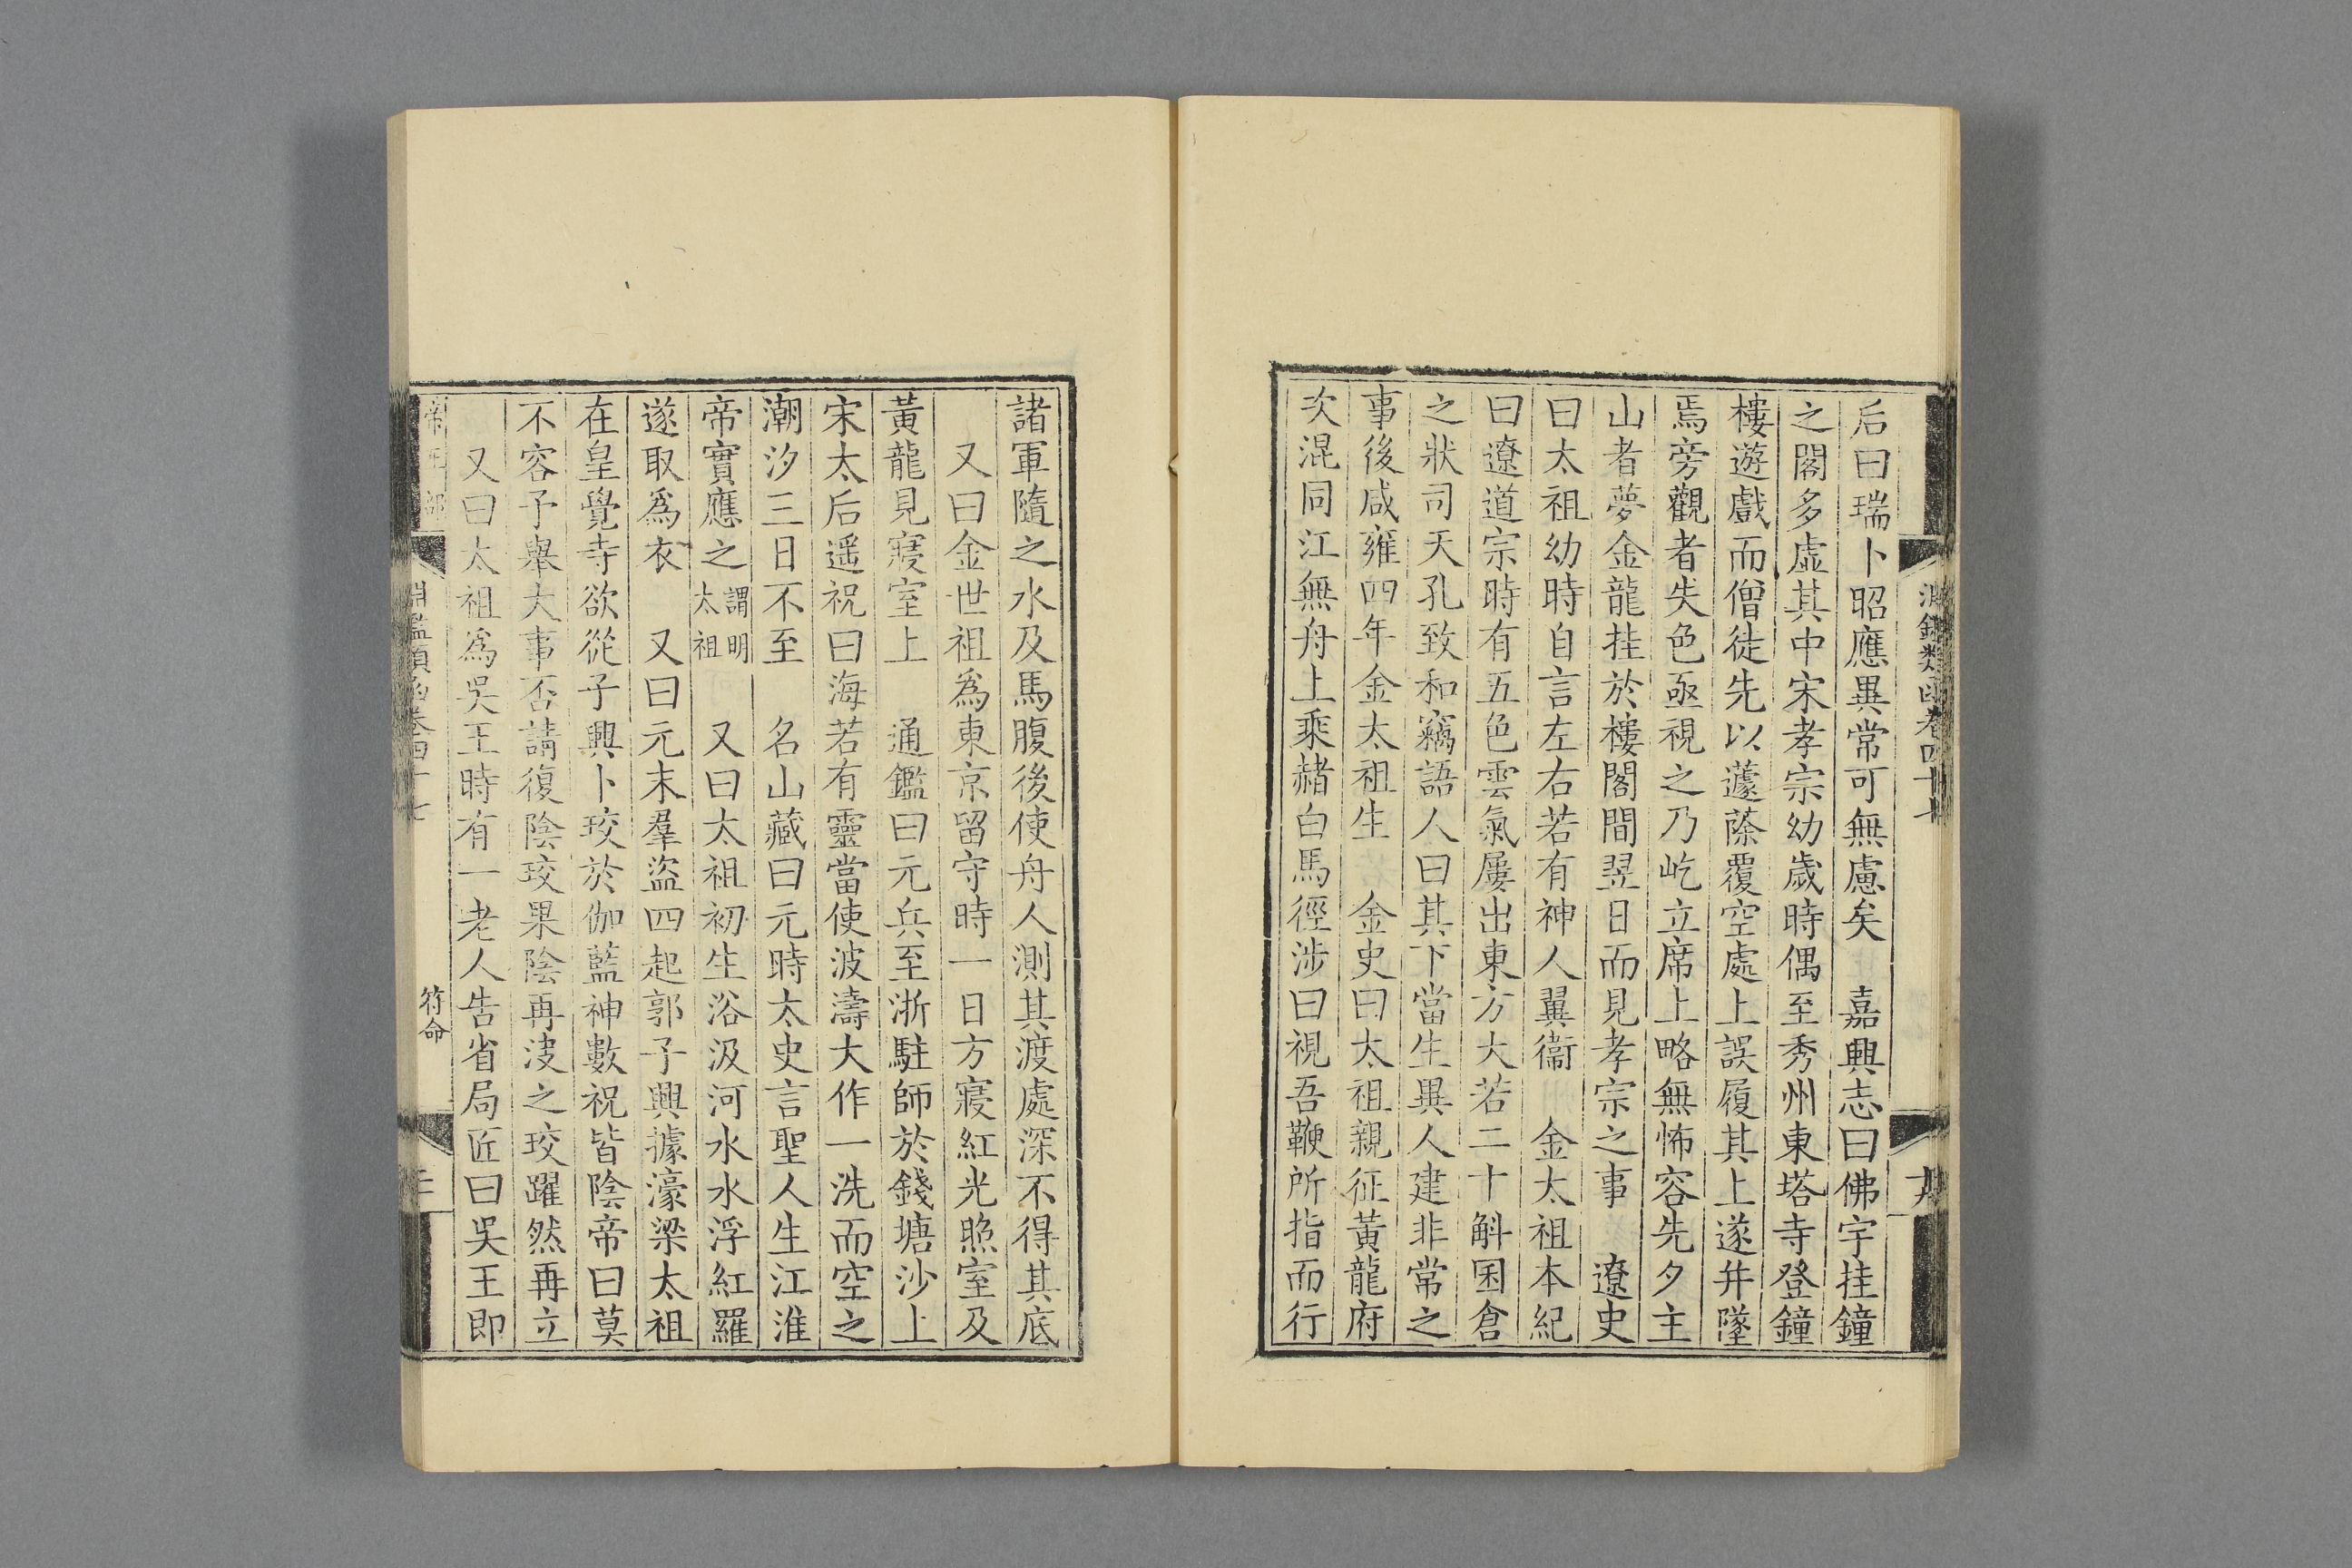 后曰瑞卜昭應異常可無慮矣　嘉興志曰佛宇挂鐘
之閣多虛其中宋孝宗幼歲時偶至秀州東塔寺登鐘
樓遊戲而僧徒先以蘧蒢覆空處上誤履其上遂并墜
焉旁觀者失色亟視之乃屹立席上略無怖容先夕主
山者夢金龍挂於樓閣間翌日而見孝宗之事　遼史
曰太祖幼時自言左右若有神人翼衞　金太祖本紀
曰遼道宗時有五色雲氣屢出東方大若二十斛囷倉
之狀司天孔致和竊語人曰其下當生異人建非常之
事後咸雍四年金太祖生　金史曰太祖親征黃龍府
次混同江無舟上乘赭白馬徑涉曰視吾鞭所指而行
諸軍隨之水及馬腹後使舟人測其渡處深不得其底
又曰金世祖爲東京留守時一日方寢紅光照室及
黃龍見寢室上　通鑑曰元兵至浙駐師於錢塘沙上
宋太后遥祝曰海若有靈當使波濤大作一洗而空之
潮汐三日不至　名山藏曰元時太史言聖人生江淮
帝實應之謂明太祖　又曰太祖初生浴汲河水水浮紅羅
遂取爲衣　又曰元末羣盜四起郭子興據濠梁太祖
在皇覺寺欲從子興卜珓於伽藍神數祝皆陰帝曰莫
不容予舉大事否請復陰珓果陰再𢓜之珓躍然再立
又曰太祖爲吳王時有一老人告省局匠曰吳王即
帝王部
淵鑑類函卷四十七
符命